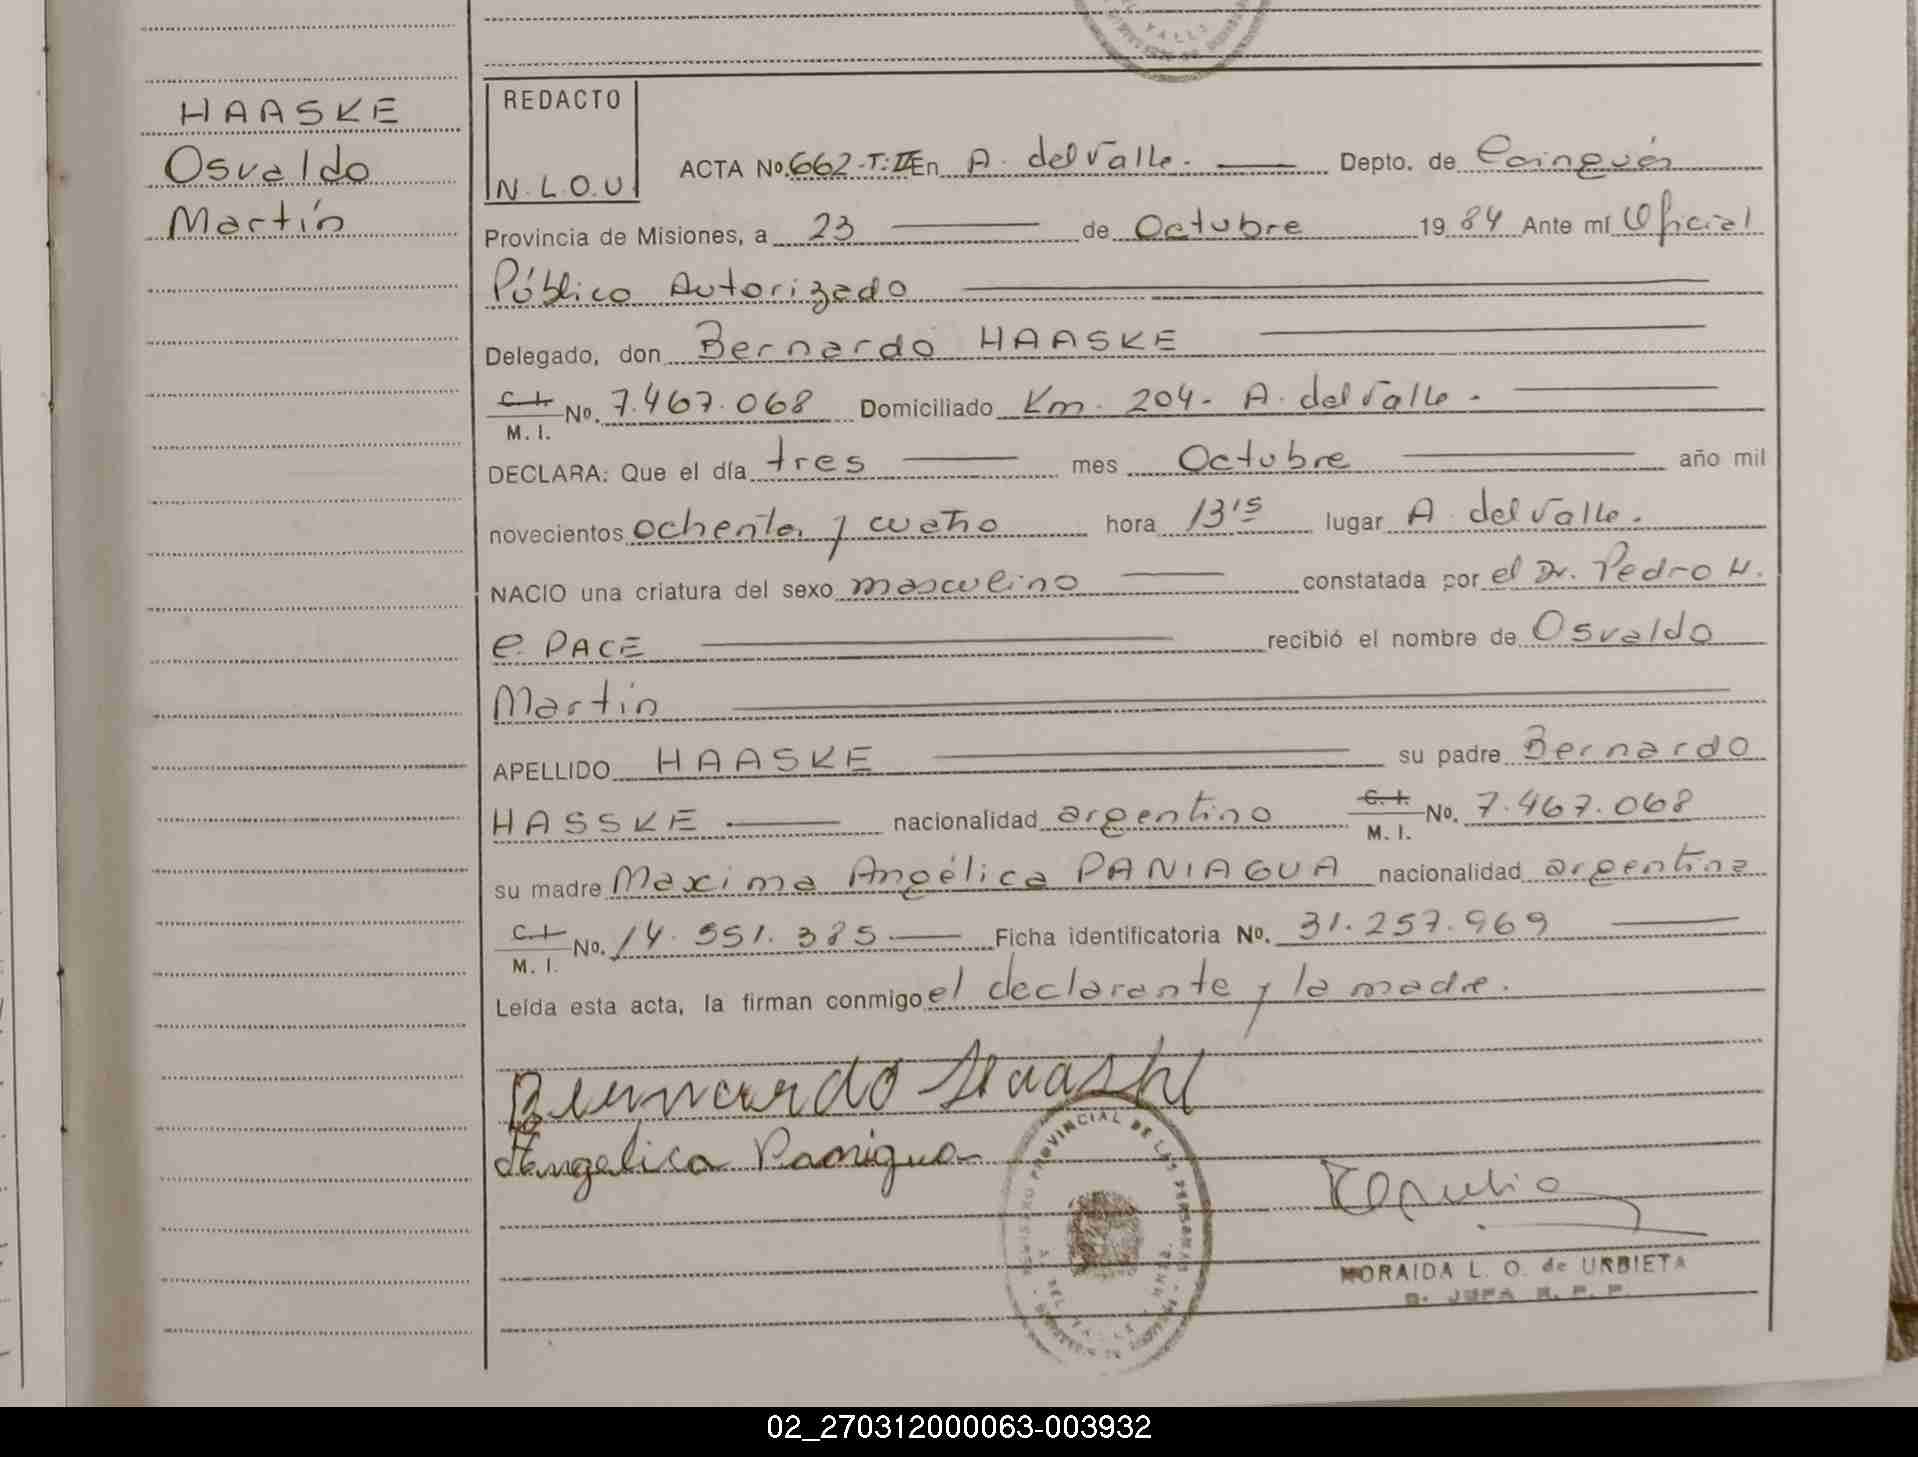 HAASKE
Osvaldo
Martín
REDACTO
N.L.O.U
ACTA No. 662-T:II En A. del Valle. Depto. de Cainguás
Provincia de Misiones, a 23 de Octubre 19 84 Ante mí Oficial
Público Autorizado
Delegado, don Bernardo HAASKE
C. I. M. I. No. 7.467.068 Domiciliado Km. 204- A. del Valle.
DECLARA: Que el día tres mes Octubre año mil
novecientos ochenta y cuatro hora 13'15 lugar A. del Valle.
NACIO una criatura del sexo masculino constatada por el Dr. Pedro H.
e. PACE recibió el nombre de Osvaldo
Martín
APELLIDO HAASKE su padre Bernardo
HASSKE nacionalidad argentino C. I. M. I. No. 7.467.068
su madre Maxima Angélica PANIAGUA nacionalidad argentina
C. I. M. I. No. 14.551.385 Ficha identificatoria No. 31.257.969
Leída esta acta, la firman conmigo el declarante y la madre.
Bernardo Haaske
Angelica Panigua
REGISTRO PROVINCIAL DE LAS PERSONAS
MORAIDA L. O. de URBIETA
02_270312000063-003932